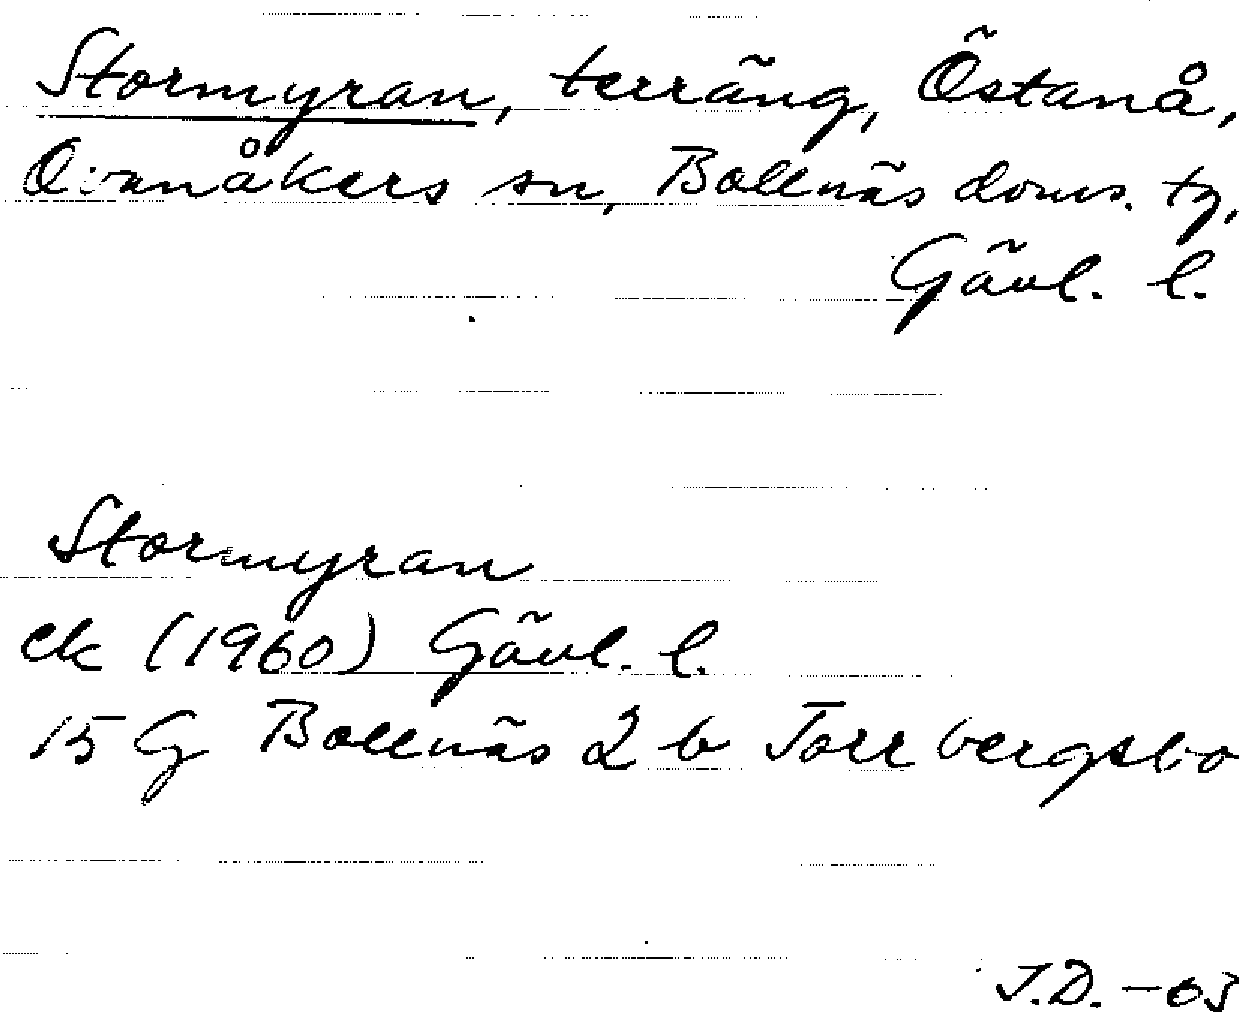 Stormyran, terräng, Östanå,
Ovanåkers sn, Bollnäs doms. tg,
Gävl. l.
Stormyran
ek (1960) Gävl. l.
15 G Bollnäs 2 b Torrbergsbo
J.D. -63